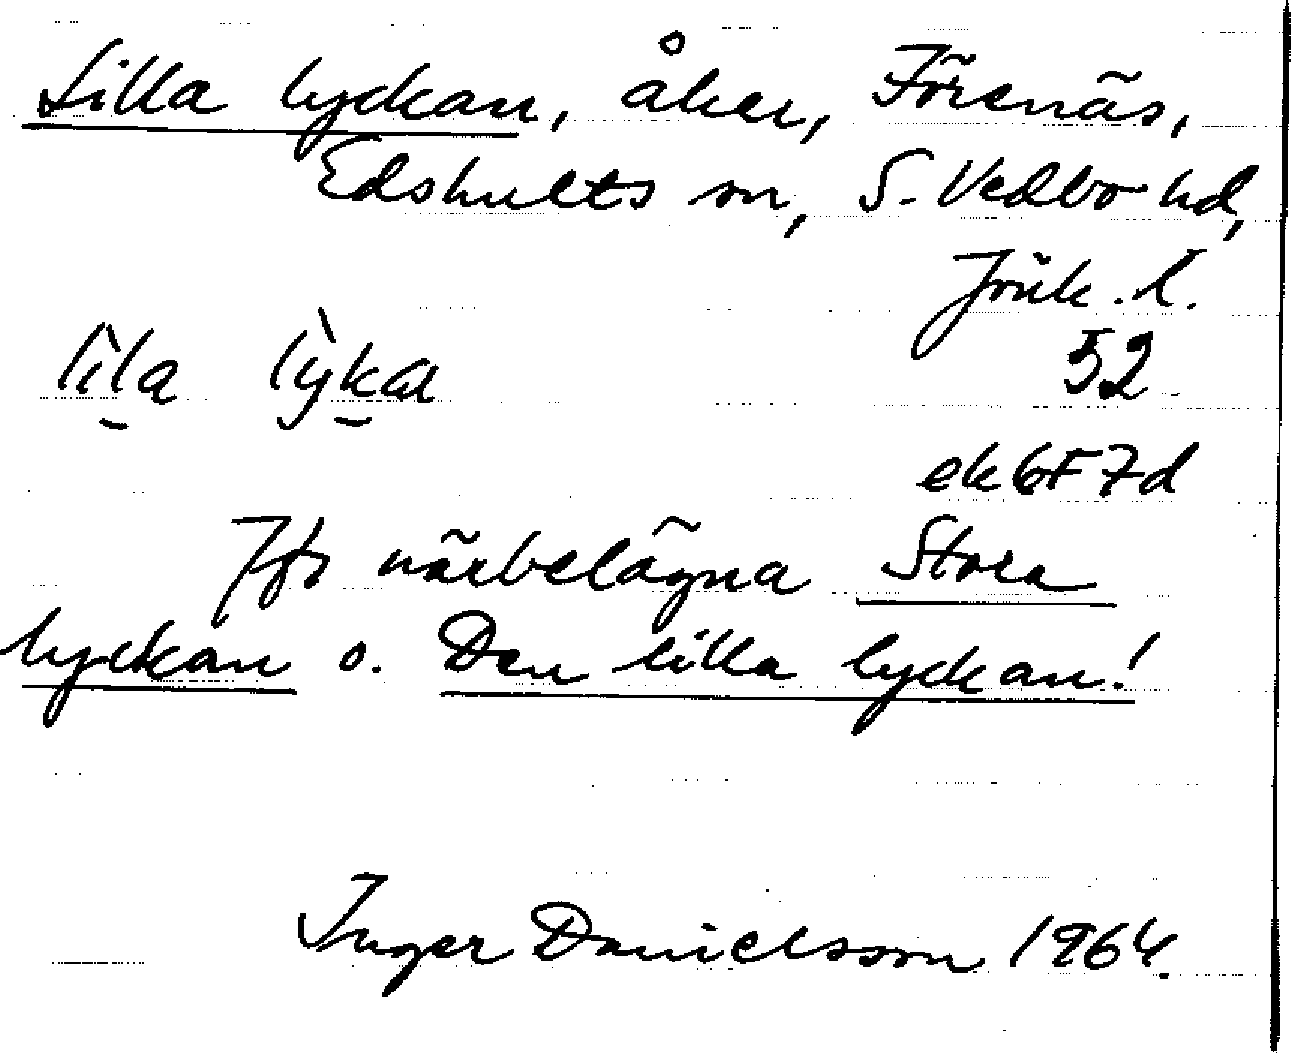 Lilla lyckan, åker, Förenäs,
Edshults sn, S. Vedbo hd,
Jönk. l.
lìla lỳkaɴ 52
ek 6F7d
Jfr närbelägna Stora
lyckan o. Den lilla lyckan!
Inger Danielsson 1964.